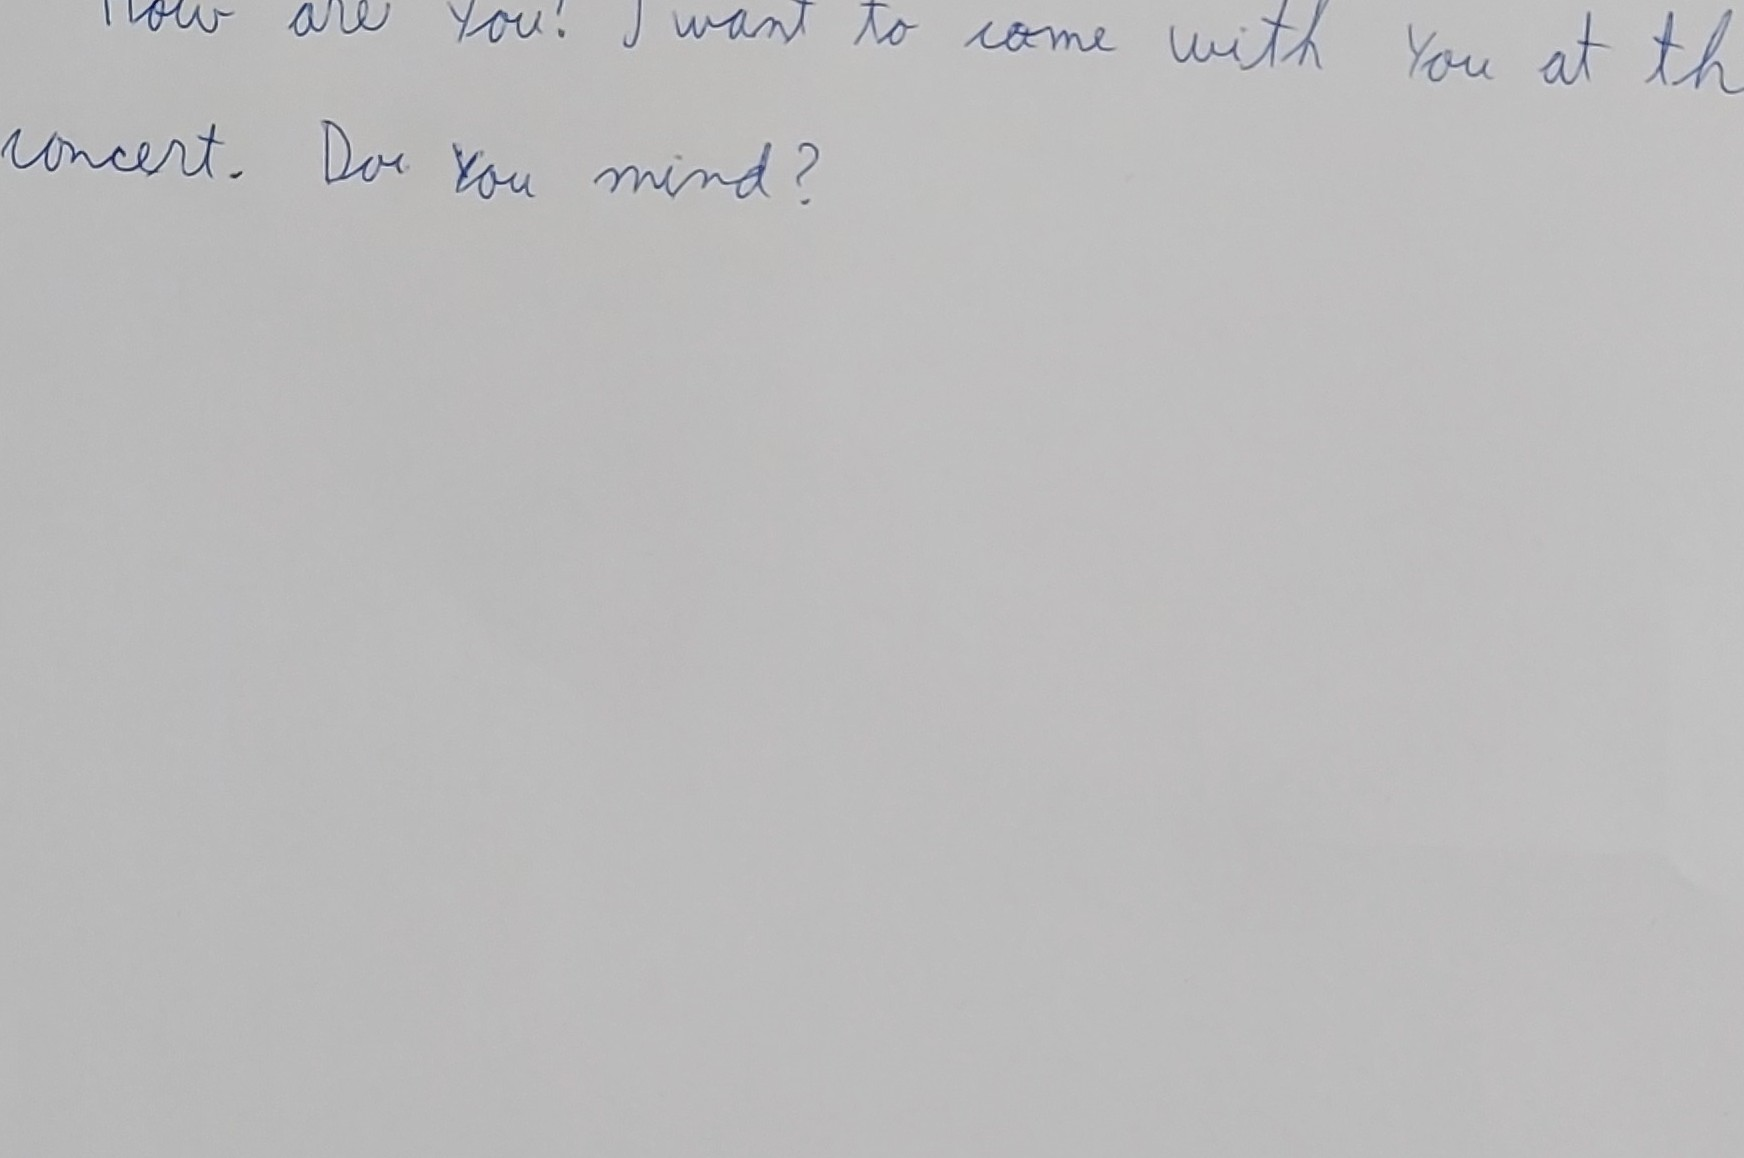 How are You! I want to come with You at th
concert. Doe You mind?